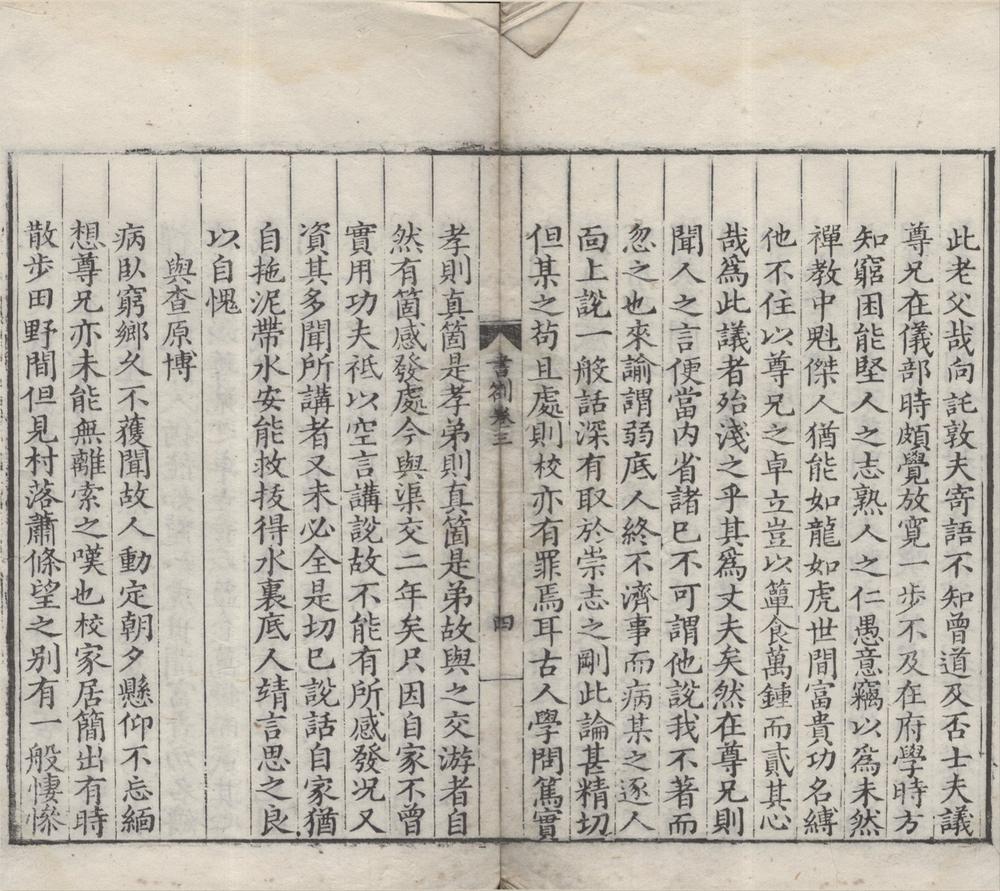 此老父哉向託敦夫寄語不知曾道及否士夫議
尊兄在儀部時頗覺放寬一步不及在府學時方
知窮困能堅人之志熟人之仁愚意竊以為未然
禪教中魁傑人猶能如龍如虎世間富貴功名縛
他不住以尊兄之卓立豈以簞食萬鍾而貳其心
哉為此議者殆淺之乎其為丈夫矣然在尊兄則
聞人之言便當内省諸己不可謂他說我不著而
忽之也來諭謂弱底人終不濟事而病某之逐人
面上說一般話深有取於崇志之剛此論甚精切
但某之苟且處則校亦有罪焉耳古人學問篤實
書劄卷三
四
孝則真箇是孝弟則真箇是弟故與之交游者自
然有箇感發處今與渠交二年矣只因自家不曾
實用功夫祇以空言講說故不能有所感發况又
資其多聞所講者又未必全是切己說話自家猶
自拖泥帶水安能救拔得水裏底人靖言思之良
以自愧
與查原博
病臥窮鄉久不獲聞故人動定朝夕懸仰不忘緬
想尊兄亦未能無離索之嘆也校家居簡出有時
散步田野間但見村落蕭條望之别有一般悽慘